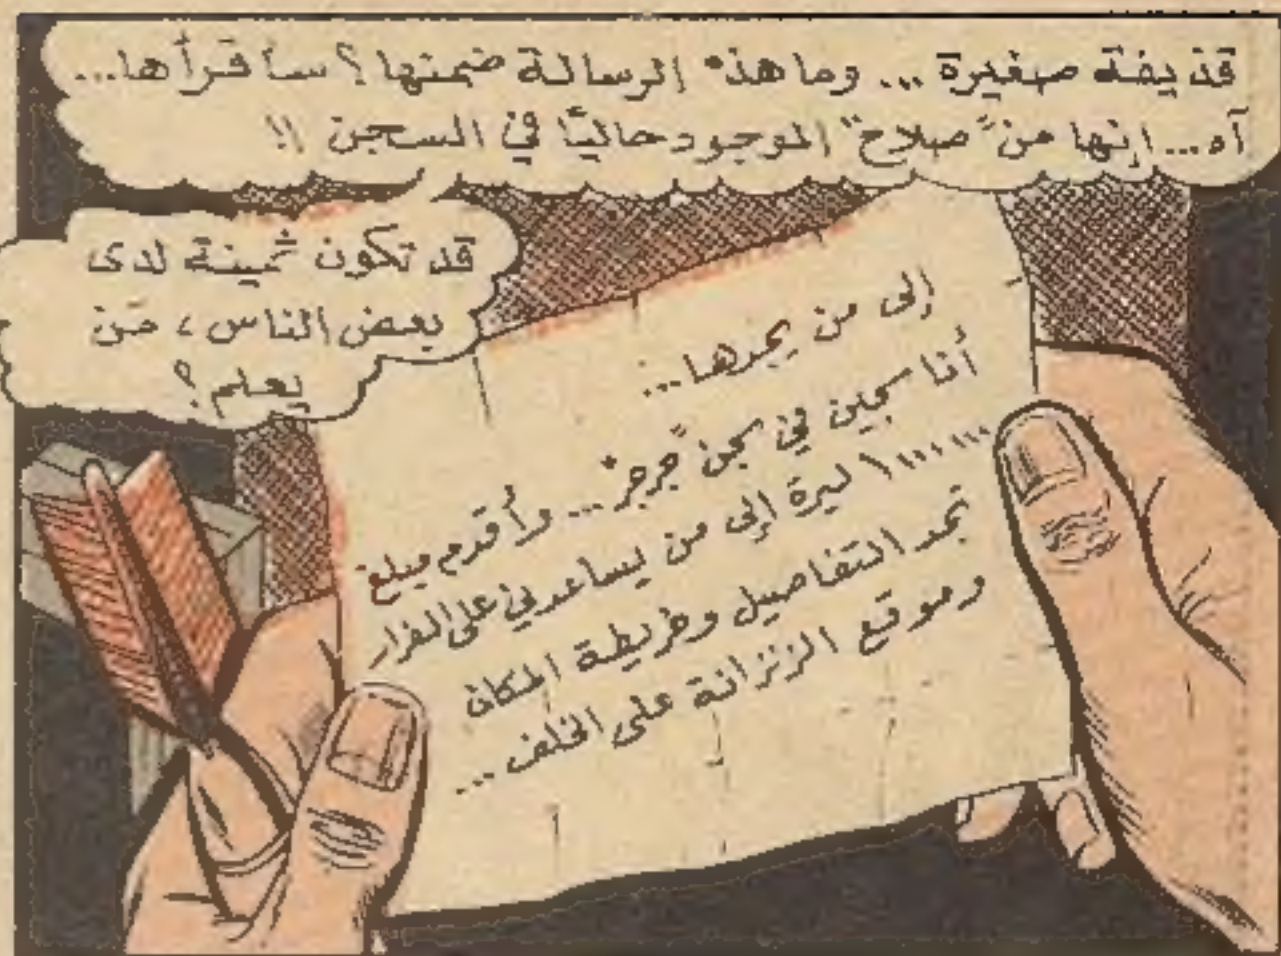 قذيفة صغيرة ... وما هذه الرسالة ضمنها؟ سأقرأها...
آه... إنها من "صلاح" الموجود حاليًا في السجن !!
قد تكون ثمينة لدى
بعض الناس ، من
يعلم؟
إلى من يجدها...
أنا سجين في سجن "جرجر" ... وأقدم مبلغ
١٠٠٠٠٠٠ ليرة إلى من يساعدني على الفرار
تجد التفاصيل وخريطة المكان
وموقع الزنزانة على الخلف ...